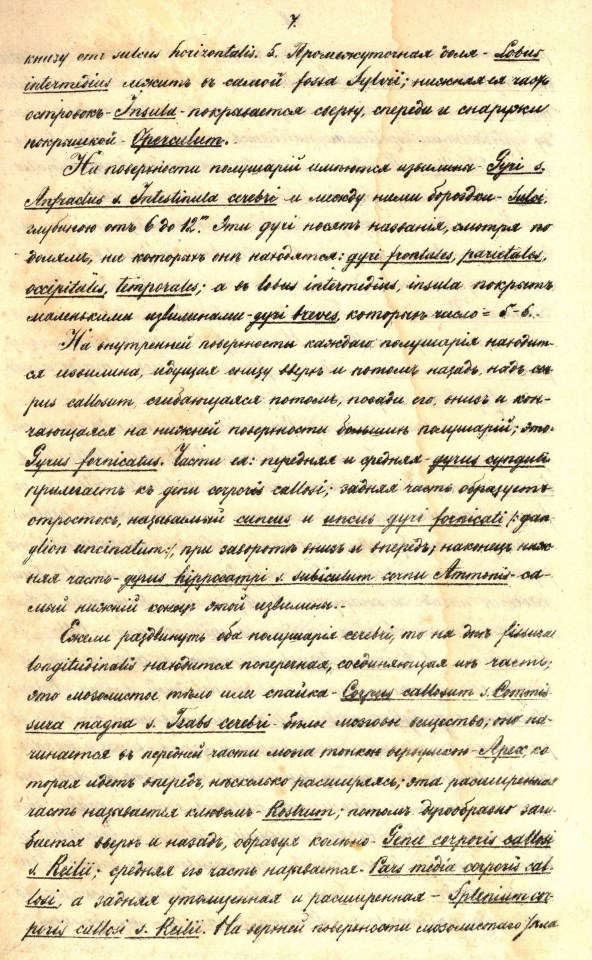 7.
книзу отъ sulcus horizontalis. 5. Промежуточная доля - Lobus
intermedius лежитъ въ самой fossa Sylvii; нижняя ея часть
островокъ - Insula - покрывается сверху, спереди и снаружи
покрышкой - Operculum. -
На поверхности полушарій имѣются извилины - Gyri s.
Anfractus s. Intestinula cerebri - и между ними бороздки - Sulci,
глубиною отъ 6 до 12'''. Эти gyri носятъ названія, смотря по
долямъ, на которыхъ онѣ находятся: gyri frontales, parietales,
occipitales, temporales; а въ lobus intermedius, insula покрытъ
маленькими извилинами - gyri breves, которыхъ число = 5-6. -
На внутренней поверхности каждаго полушарія находит-
ся извилина, идущая снизу вверхъ и потомъ назадъ, надъ cor
pus callosum, сгибающаяся потомъ, позади его, внизъ и кон-
чающаяся на нижней поверхности большихъ полушарій; это
Gyrus fornicatus. Части ея: передняя и средняя - gyrus cynguli
прилегаетъ къ genu corporis callosi; задняя часть образуетъ
отростокъ, называемый cuneus и uncus gyri fornicati /:gan
glion uncinatum:/, при заворотѣ внизъ и впередъ; наконецъ ниж-
няя часть - gyrus hippocampi s. subiculum cornu Ammonis - са-
мый нижній конецъ этой извилины. -
Ежели раздвинуть оба полушарія cerebri, то на днѣ fissurae
longitudinalis находится поперечная, соединяющая ихъ часть;
это мозолистое тѣло или спайка - Corpus callosum s. Commis
sura magna s. Trabs cerebri - бѣлое мозговое вещество; оно на-
чинается въ передней части мозга тонкою верхушкою - Apex, ко
торая идетъ впередъ, нѣсколько расширяясь; эта расширенная
часть называется клювомъ - Rostrum; потомъ дугообразно заги-
бается вверхъ и назадъ, образуя колѣно - Genu corporis callosi
s. Reilii; средняя его часть называется - Pars media corporis cal-
losi, а задняя утолщенная и расширенная - Splenium cor
poris callosi s. Reilii. На верхней поверхности мозолистаго тѣла